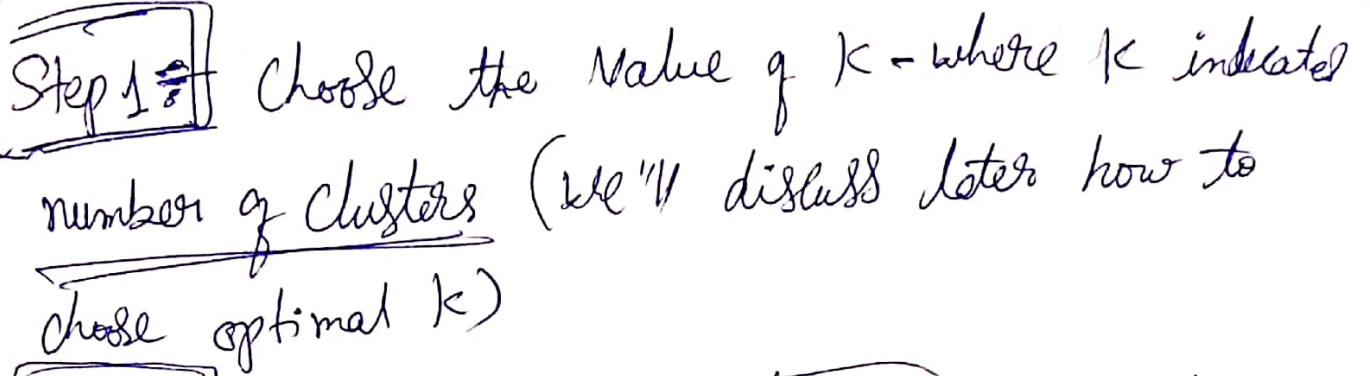 Step 1: Choose the value of K - where K indicates
number of clusters (we'll discuss later how to
choose optimal k)